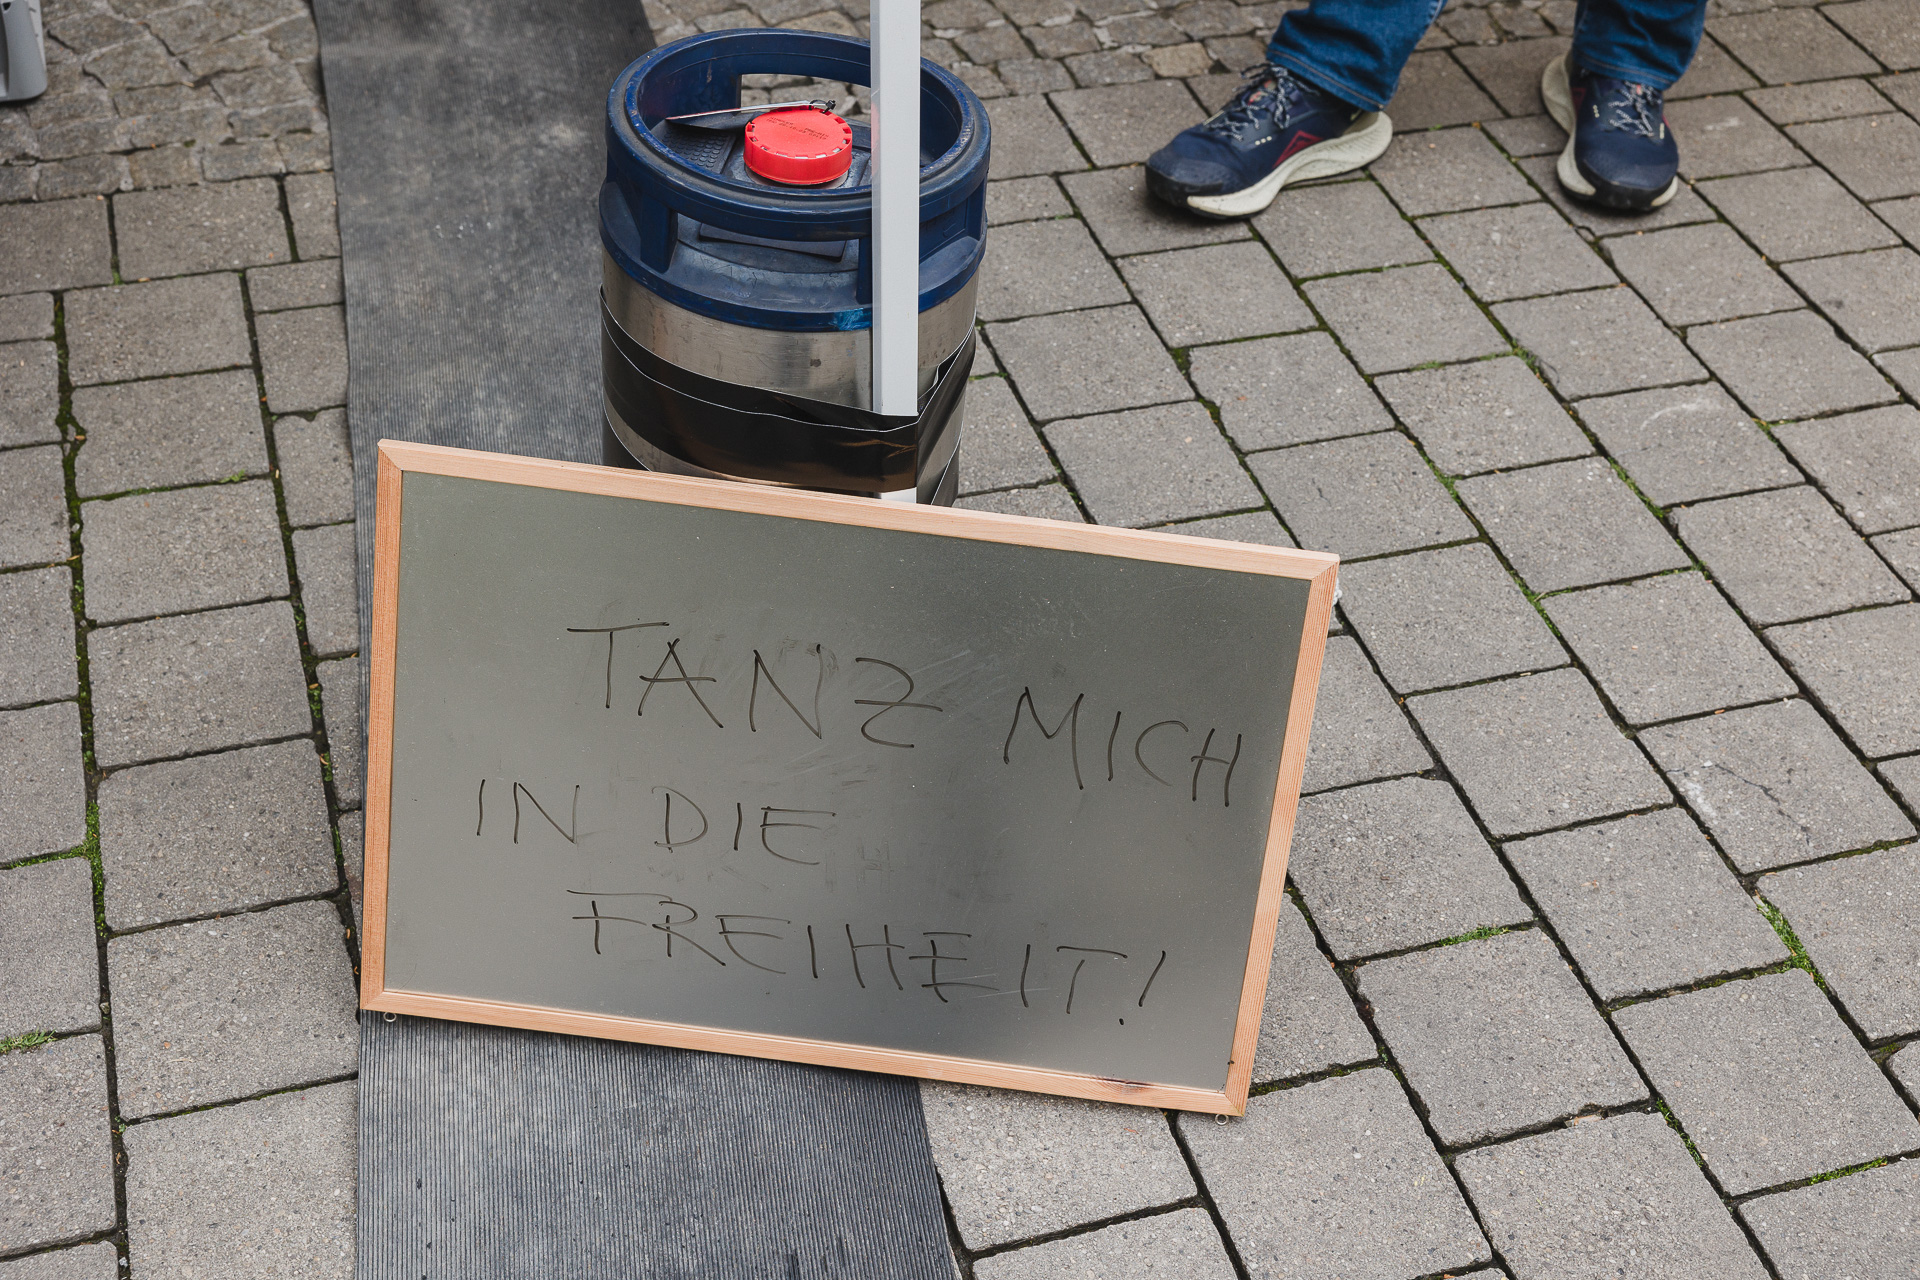 TANZ MICH
IN DIE
FREIHEIT!